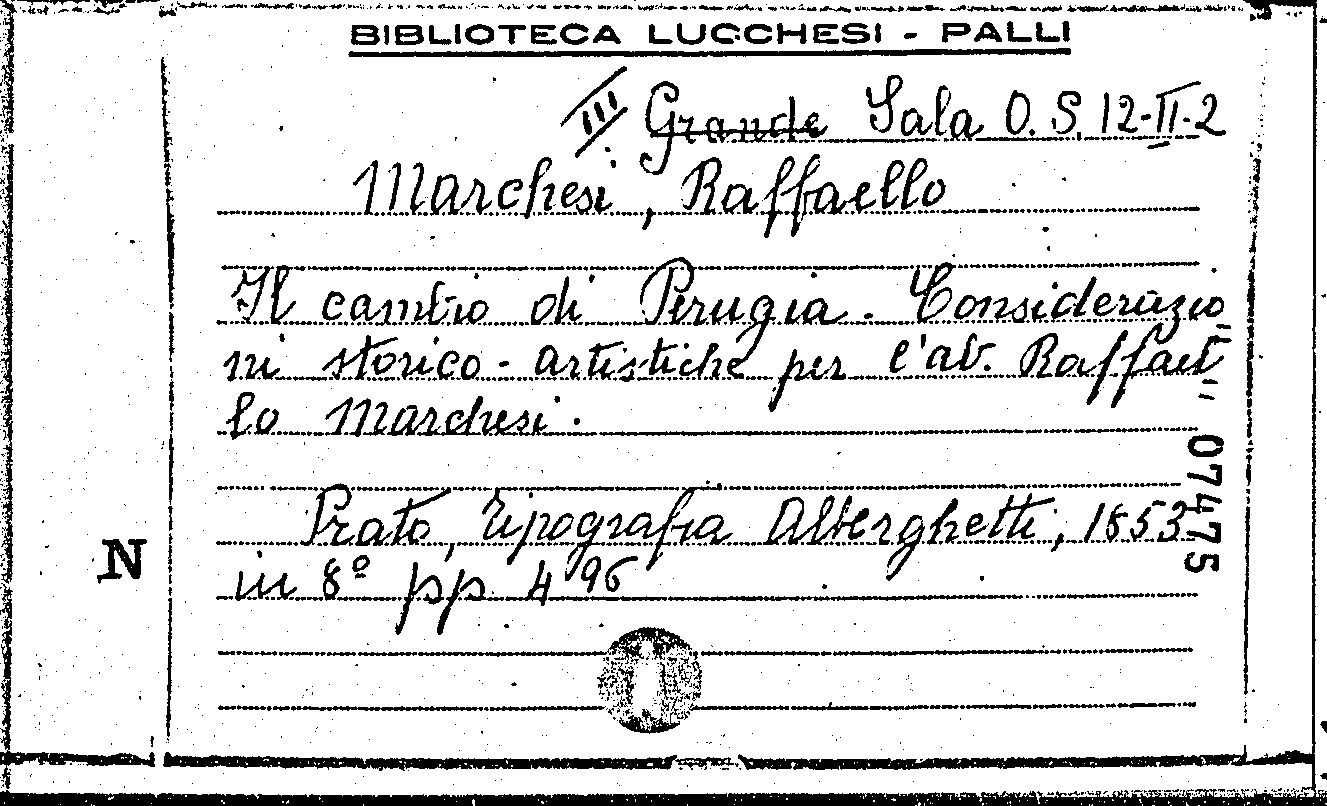 BIBLIOTECA LUCCHESI - PALLI
III Grande Sala O. S. 12-II-2
Marchesi, Raffaello
Il cambio di Perugia. Considerazio
ni storico-artistiche per l'av. Raffael
lo Marchesi.
Prato, Tipografia Alberghetti, 1853
in 8º pp 496
074475
N